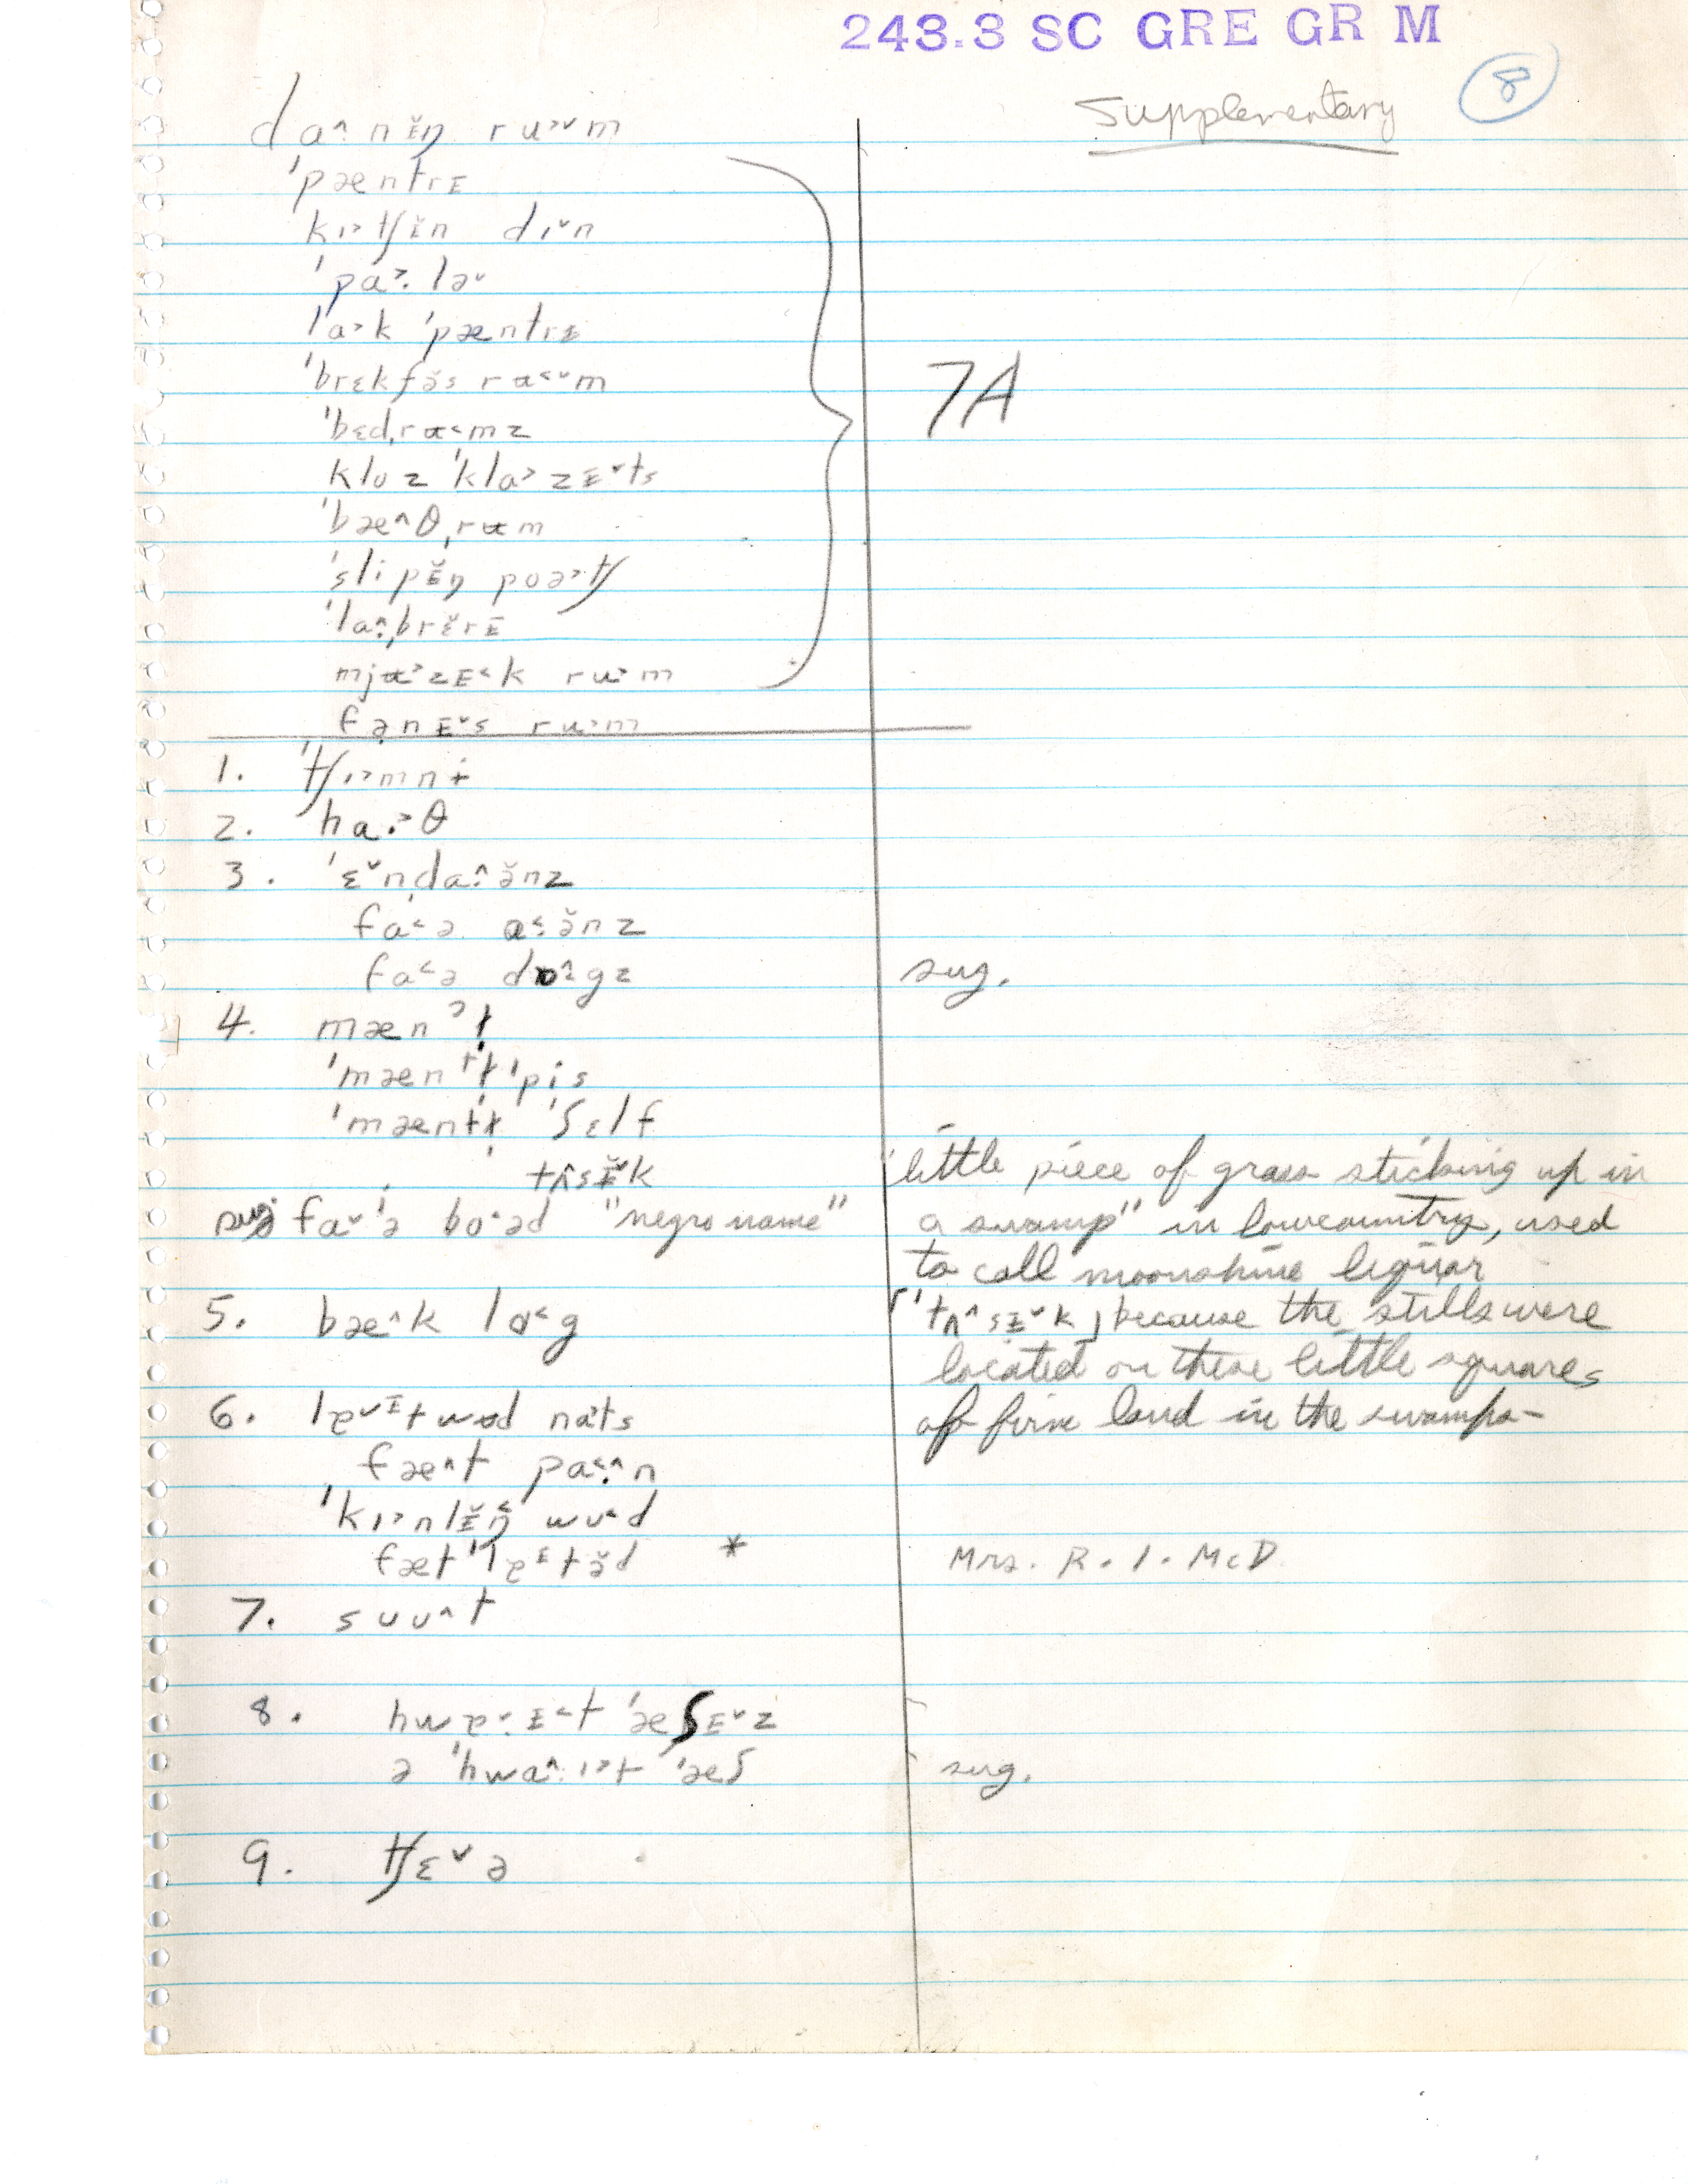 243.3 SC GRE GR M
Supplementary 8
daˆ·nɪ̆ŋ ru˃ˇm
ˈpæntrɪ
kɪ˃tʃɪ̆n dɪˇn
ˈpɑ˃·ləˇ
lɑ˃k ˈpæntrɪ
ˈbrɛkfə̆s rʉ˂ˇm
ˈbɛdˌrʉ˂mz
kloz ˈklɑ˃zɪˇts
ˈbæˆθˌrʉm
ˈslipɪ̆ŋ poə˃tʃ
ˈlaˆ·ˌbrɛ̆rɪ
mjʉ˃zɪ˂k ru˃m
fənɪˇs ru˃m
7A
1. ˈtʃɪ˃mnɨ
2. hɑ·˃θ
3. ˈɛˇnˌdaˆ·ə̆nz
fa˂ə a˂·ə̆nz
fa˂ə dɒˆ·gz sug.
4. mænˀɫ̩
ˈmæntɫ̩ˈpis
ˈmæntɫ̩ ˈʃɛlf
tʌˆsɪ̆ˇk
sug faˇə bo˂əd "negro name"
"little piece of grass sticking up in
a swamp" in lowcountry, used
to call moonshine liquor
[ˈtʌˆsɪˇk] because the stills were
located on these little squares
of firm land in the swamps-
5. bæˆk lɑ˂g
6. lɐˇɪtwəd nɑts
fæˆt pa˂·ˆn
ˈkɪ˃nlɪ̆ŋ wu˂d
fætˈlɐɪtə̆d * Mrs. R. I. McD.
7. sʊuˆt
8. hwɐˇ·ɪ˂t ˈæʃɪˇz
ə ˈhwaˆ·ɪ˃t ˈæʃ sug.
9. tʃɛˇə